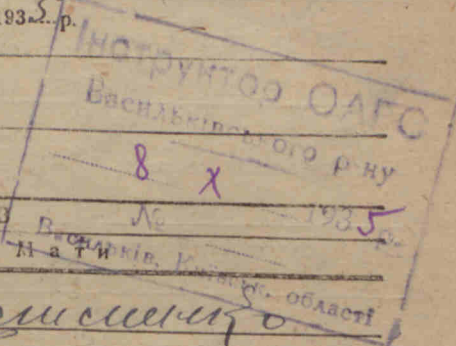 1935 р.
Інструктор ОАГС
Васильківського р-ну
8 X
№ 1935 р.
Васильків, Київськ. області
Мати